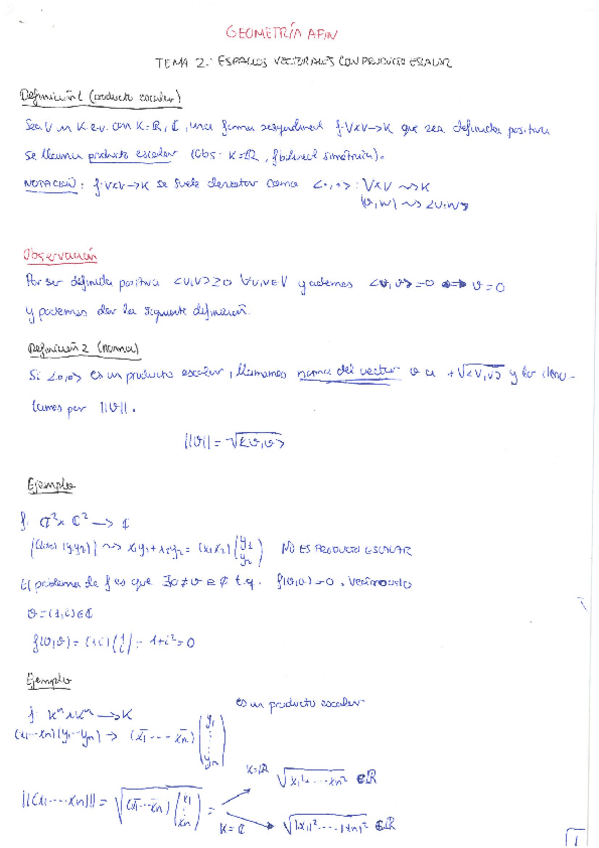 GEOMETRÍA AFIN
TEMA 2: ESPACIOS VECTORIALES CON PRODUCTO ESCALAR
Definición 1 (producto escalar)
Sea V un K e.v. con K=ℝ, ℂ, una forma sesquilineal f:V×V→K que sea definida positiva
se llama producto escalar (Obs: K=ℝ, f bilineal simétrica).
NOTACIÓN: f:V×V→K se suele denotar como <·,·>: V×V ⇝ K
(v,w) ⇝ <v,w>
Observación
Por ser definida positiva <v,v> ≥ 0 ∀v,v∈V y ademas <v,v> = 0 ⟺ v = 0
y podemos dar la siguente definición.
Definición 2 (norma)
Si <·,·> es un producto escalar, llamamos norma del vector v a +√<v,v> y lo deno-
tamos por ||v||.
||v|| = √<v,v>
Ejemplo
f: ℂ²×ℂ² → ℂ
((x₁x₂)(y₁y₂)) ⇝ x₁y₁+x₂y₂ = (x₁x₂)(y₁ y₂) NO ES PRODUCTO ESCALAR
El problema de f es que ∃0≠v∈ℂ t.q. f(v,v)=0. Veámoslo
v=(1,i)∈ℂ
f(v,v) = (1 i)(1 i) = 1+i² = 0
Ejemplo
f: Kⁿ×Kⁿ → K es un producto escalar
(x₁...xₙ)(y₁...yₙ) → (x̄₁ ... x̄ₙ)(y₁ ⋮ yₙ)
||(x₁...xₙ)|| = √(x̄₁...x̄ₙ)(x₁ ⋮ xₙ) = K=ℝ √x₁²+...xₙ² ∈ℝ
K=ℂ √|x₁|²+...|xₙ|² ∈ℝ
1